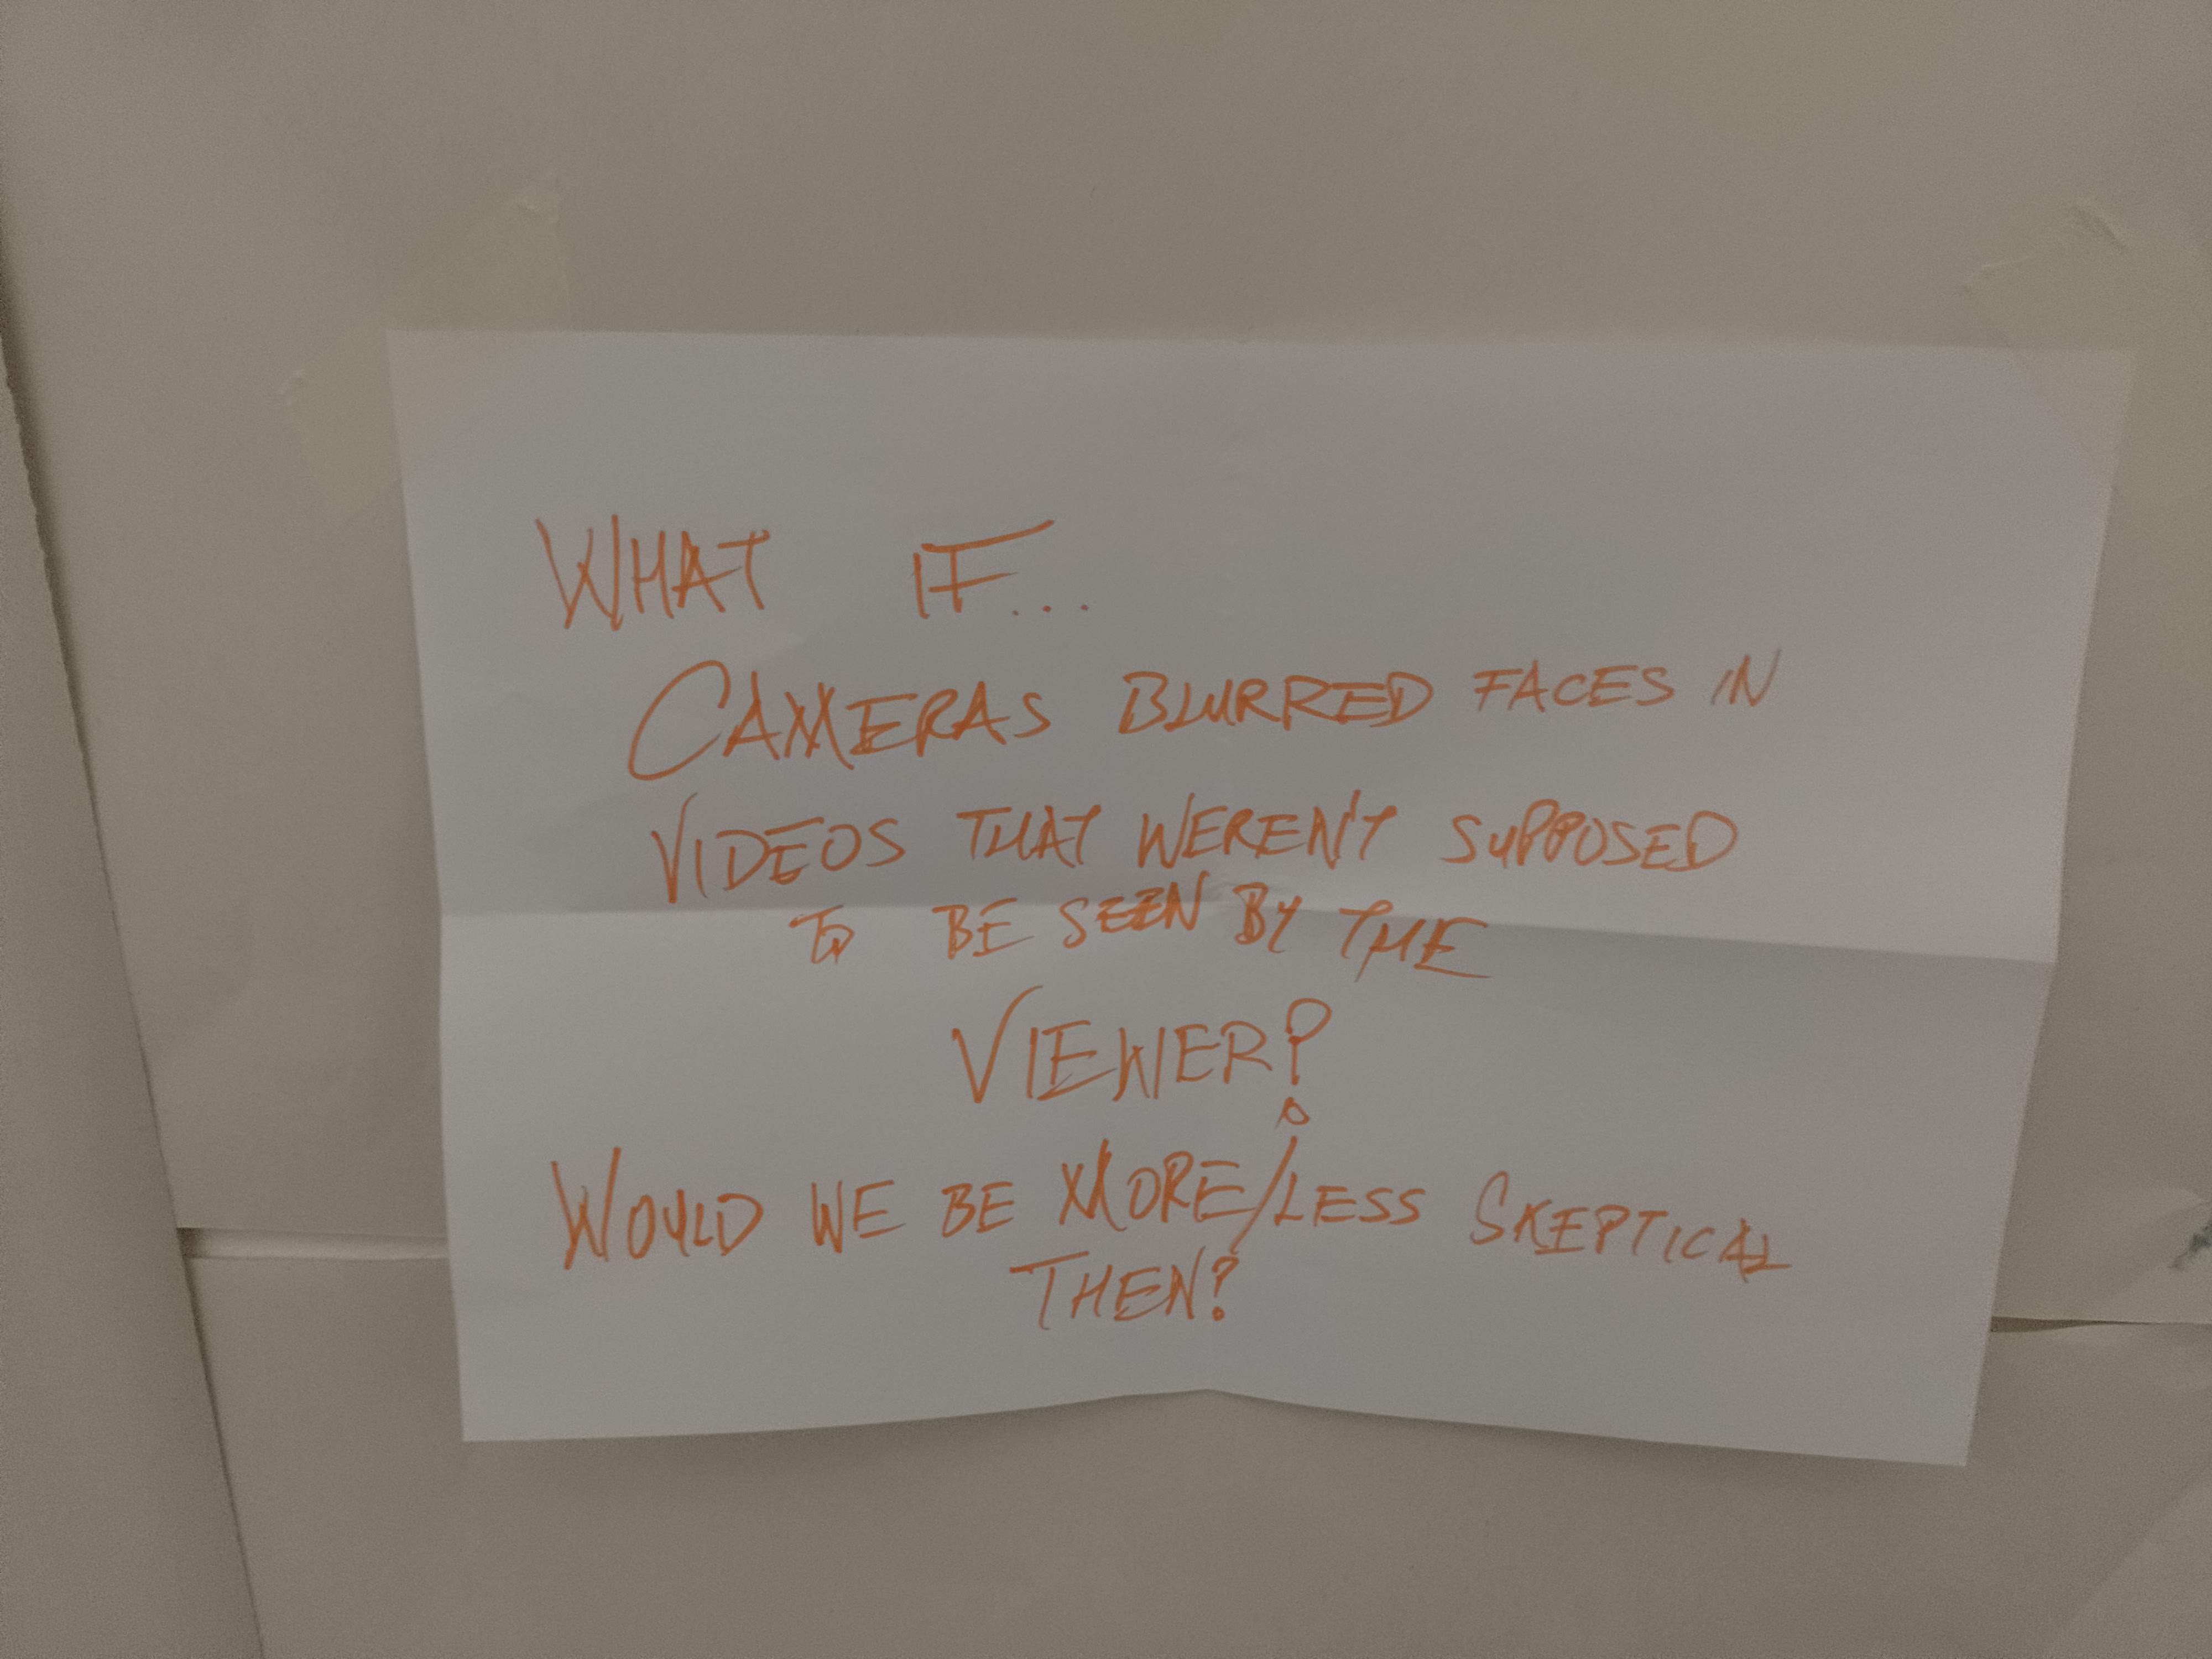 WHAT IF...
CAMERAS BLURRED FACES IN
VIDEOS THAT WEREN'T SUPPOSED
TO BE SEEN BY THE
VIEWER?
WOULD WE BE MORE/LESS SKEPTICAL
THEN?